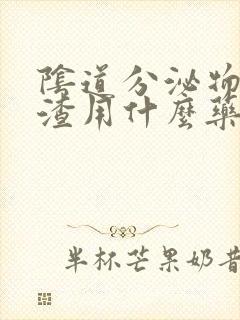 陰道分泌物
渣用什麼藥
半杯芒果奶昔